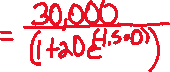 = 30,000 / (1+20e^(-1.5·0))